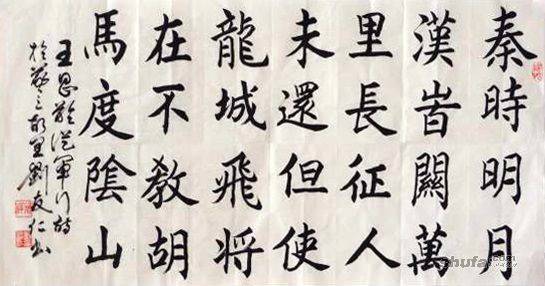 秦時明月
漢旹關萬
里長征人
未還但使
龍城飛将
在不教胡
馬度陰山
王昌齡從軍行詩
劉友仁书
shufa